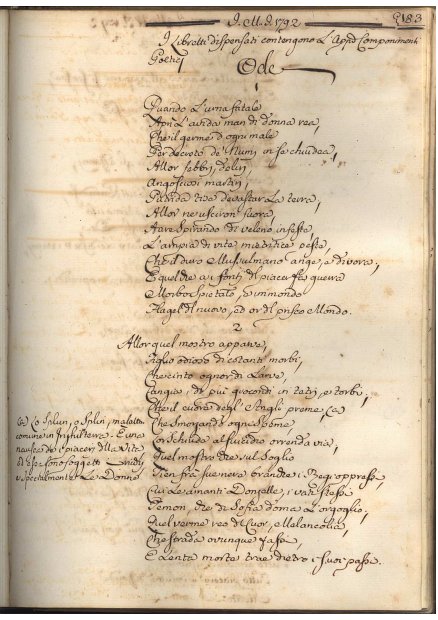 I. M. D. 1792
183
I Libretti dispensati contengono L'App.o Componimenti
Poetici
Ode
1
Quando L'urna fatale
Aprì L'avida man di donna rea,
Che il germe d'ogni male
Per decreto de' Numi in se chiudea,
Allor febbri, deliri,
Angosciosi martiri,
Partida tise devastar La terra,
Allor ne usciron fuora,
Aure spirando di veleno infeste,
L'ampia di vite mietitrice peste,
Che il duro Musulmano ange, e divora;
E quel che ai fonti del piacer fa guerra
Morbo spietato, immondo
Flagel del nuovo, ed or del prisco Mondo.
2
Allor quel mostro apparve,
Figlio odioso di cotanti morbi,
Che cinto ognor di Larve
Cangia, i dì più giocondi in tetri, e torbi;
Che il cuore degl'Angli preme, (a)
Che smorzando ogni speme
Lor schiuda al suicidio orrenda via,
Quel mostro che sul Soglio
Tien fra sue nere brande i Regi oppressi,
Cui Le amanti Donzelle, i vati stessi
Temon, che di Sofia doma L'orgoglio,
Quel verme reo del Cuor, e Melancolia,
Che strada ovunque fassi,
E Lenta morte trae dietro i suoi passi.
(a) Lo Splun, o Splin, malattia
comune in Inghilterra. È una
nausea de' piaceri della Vita
ed esse sono soggetti
e specialmente Le Donne